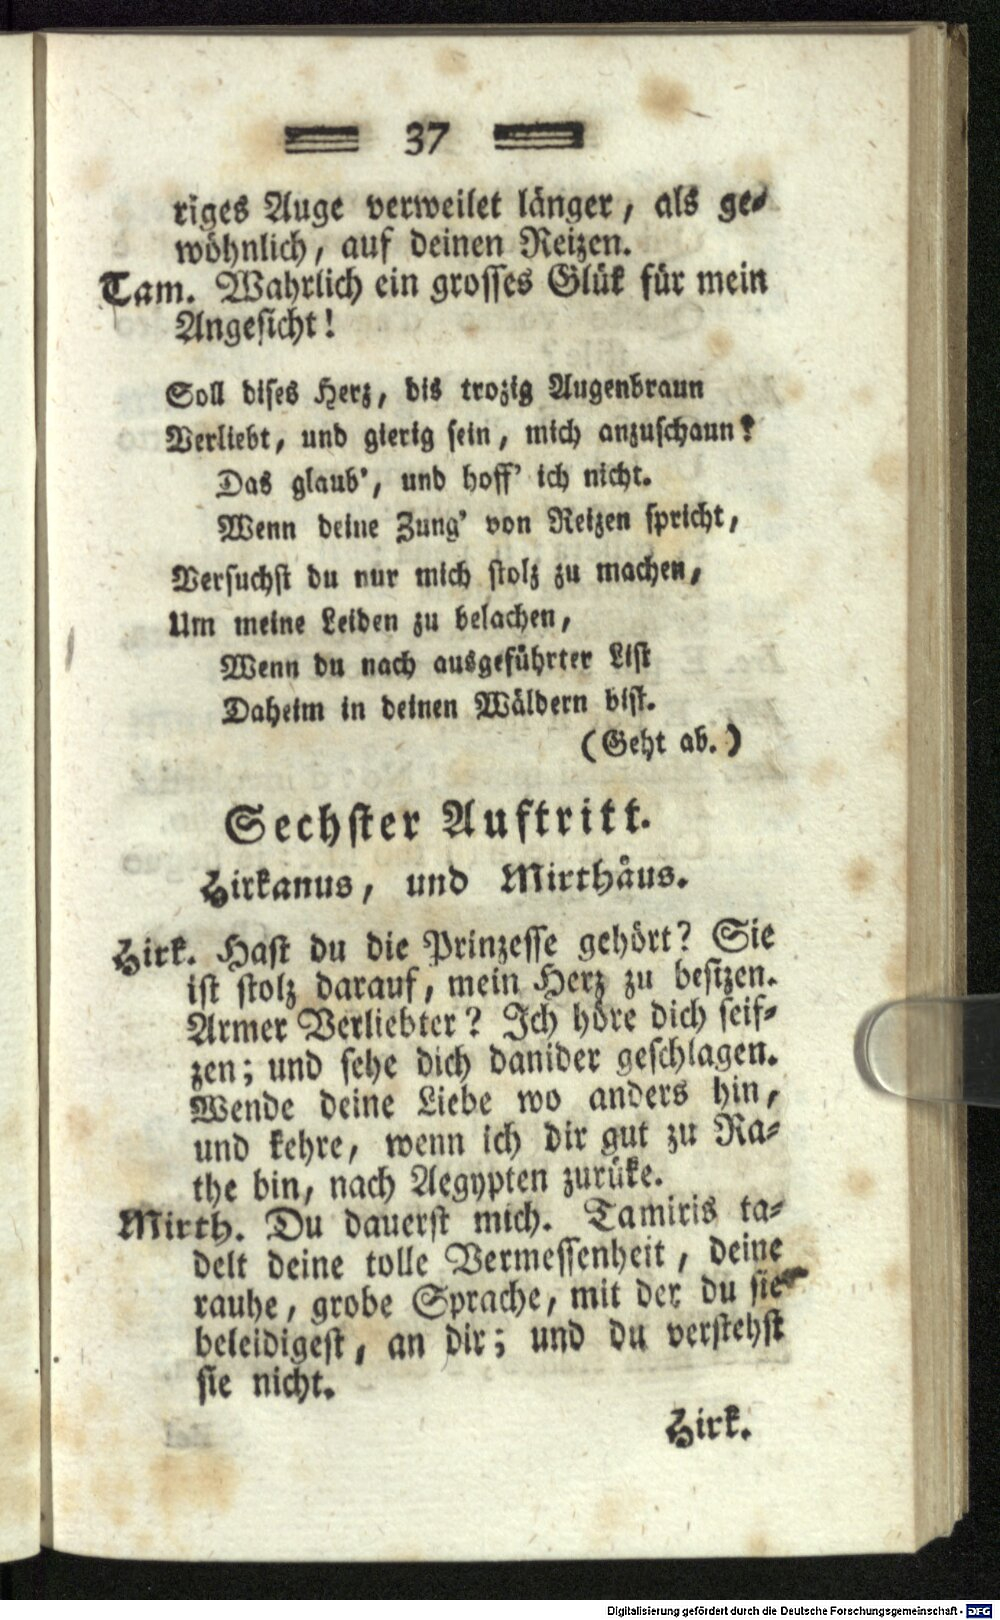 37
riges Auge verweilet länger, als ge-
wöhnlich, auf deinen Reizen.
Tam. Wahrlich ein grosses Glük für mein
Angesicht!
Soll dises Herz, dis trozig Augenbraun
Verliebt, und gierig sein, mich anzuschaun?
Das glaub', und hoff' ich nicht.
Wenn deine Zung' von Reizen spricht,
Versuchst du nur mich stolz zu machen,
Um meine Leiden zu belachen,
Wenn du nach ausgeführter List
Daheim in deinen Wäldern bist.
(Geht ab.)
Sechster Auftritt.
Hirkanus, und Mirthäus.
Hirk. Hast du die Prinzesse gehört? Sie
ist stolz darauf, mein Herz zu besizen.
Armer Verliebter? Ich höre dich seif-
zen; und sehe dich danider geschlagen.
Wende deine Liebe wo anders hin,
und kehre, wenn ich dir gut zu Ra-
the bin, nach Aegypten zurüke.
Mirth. Du dauerst mich. Tamiris ta-
delt deine tolle Vermessenheit, deine
rauhe, grobe Sprache, mit der du sie
beleidigest, an dir; und du verstehst
sie nicht.
Hirk.
Digitalisierung gefördert durch die Deutsche Forschungsgemeinschaft - DFG